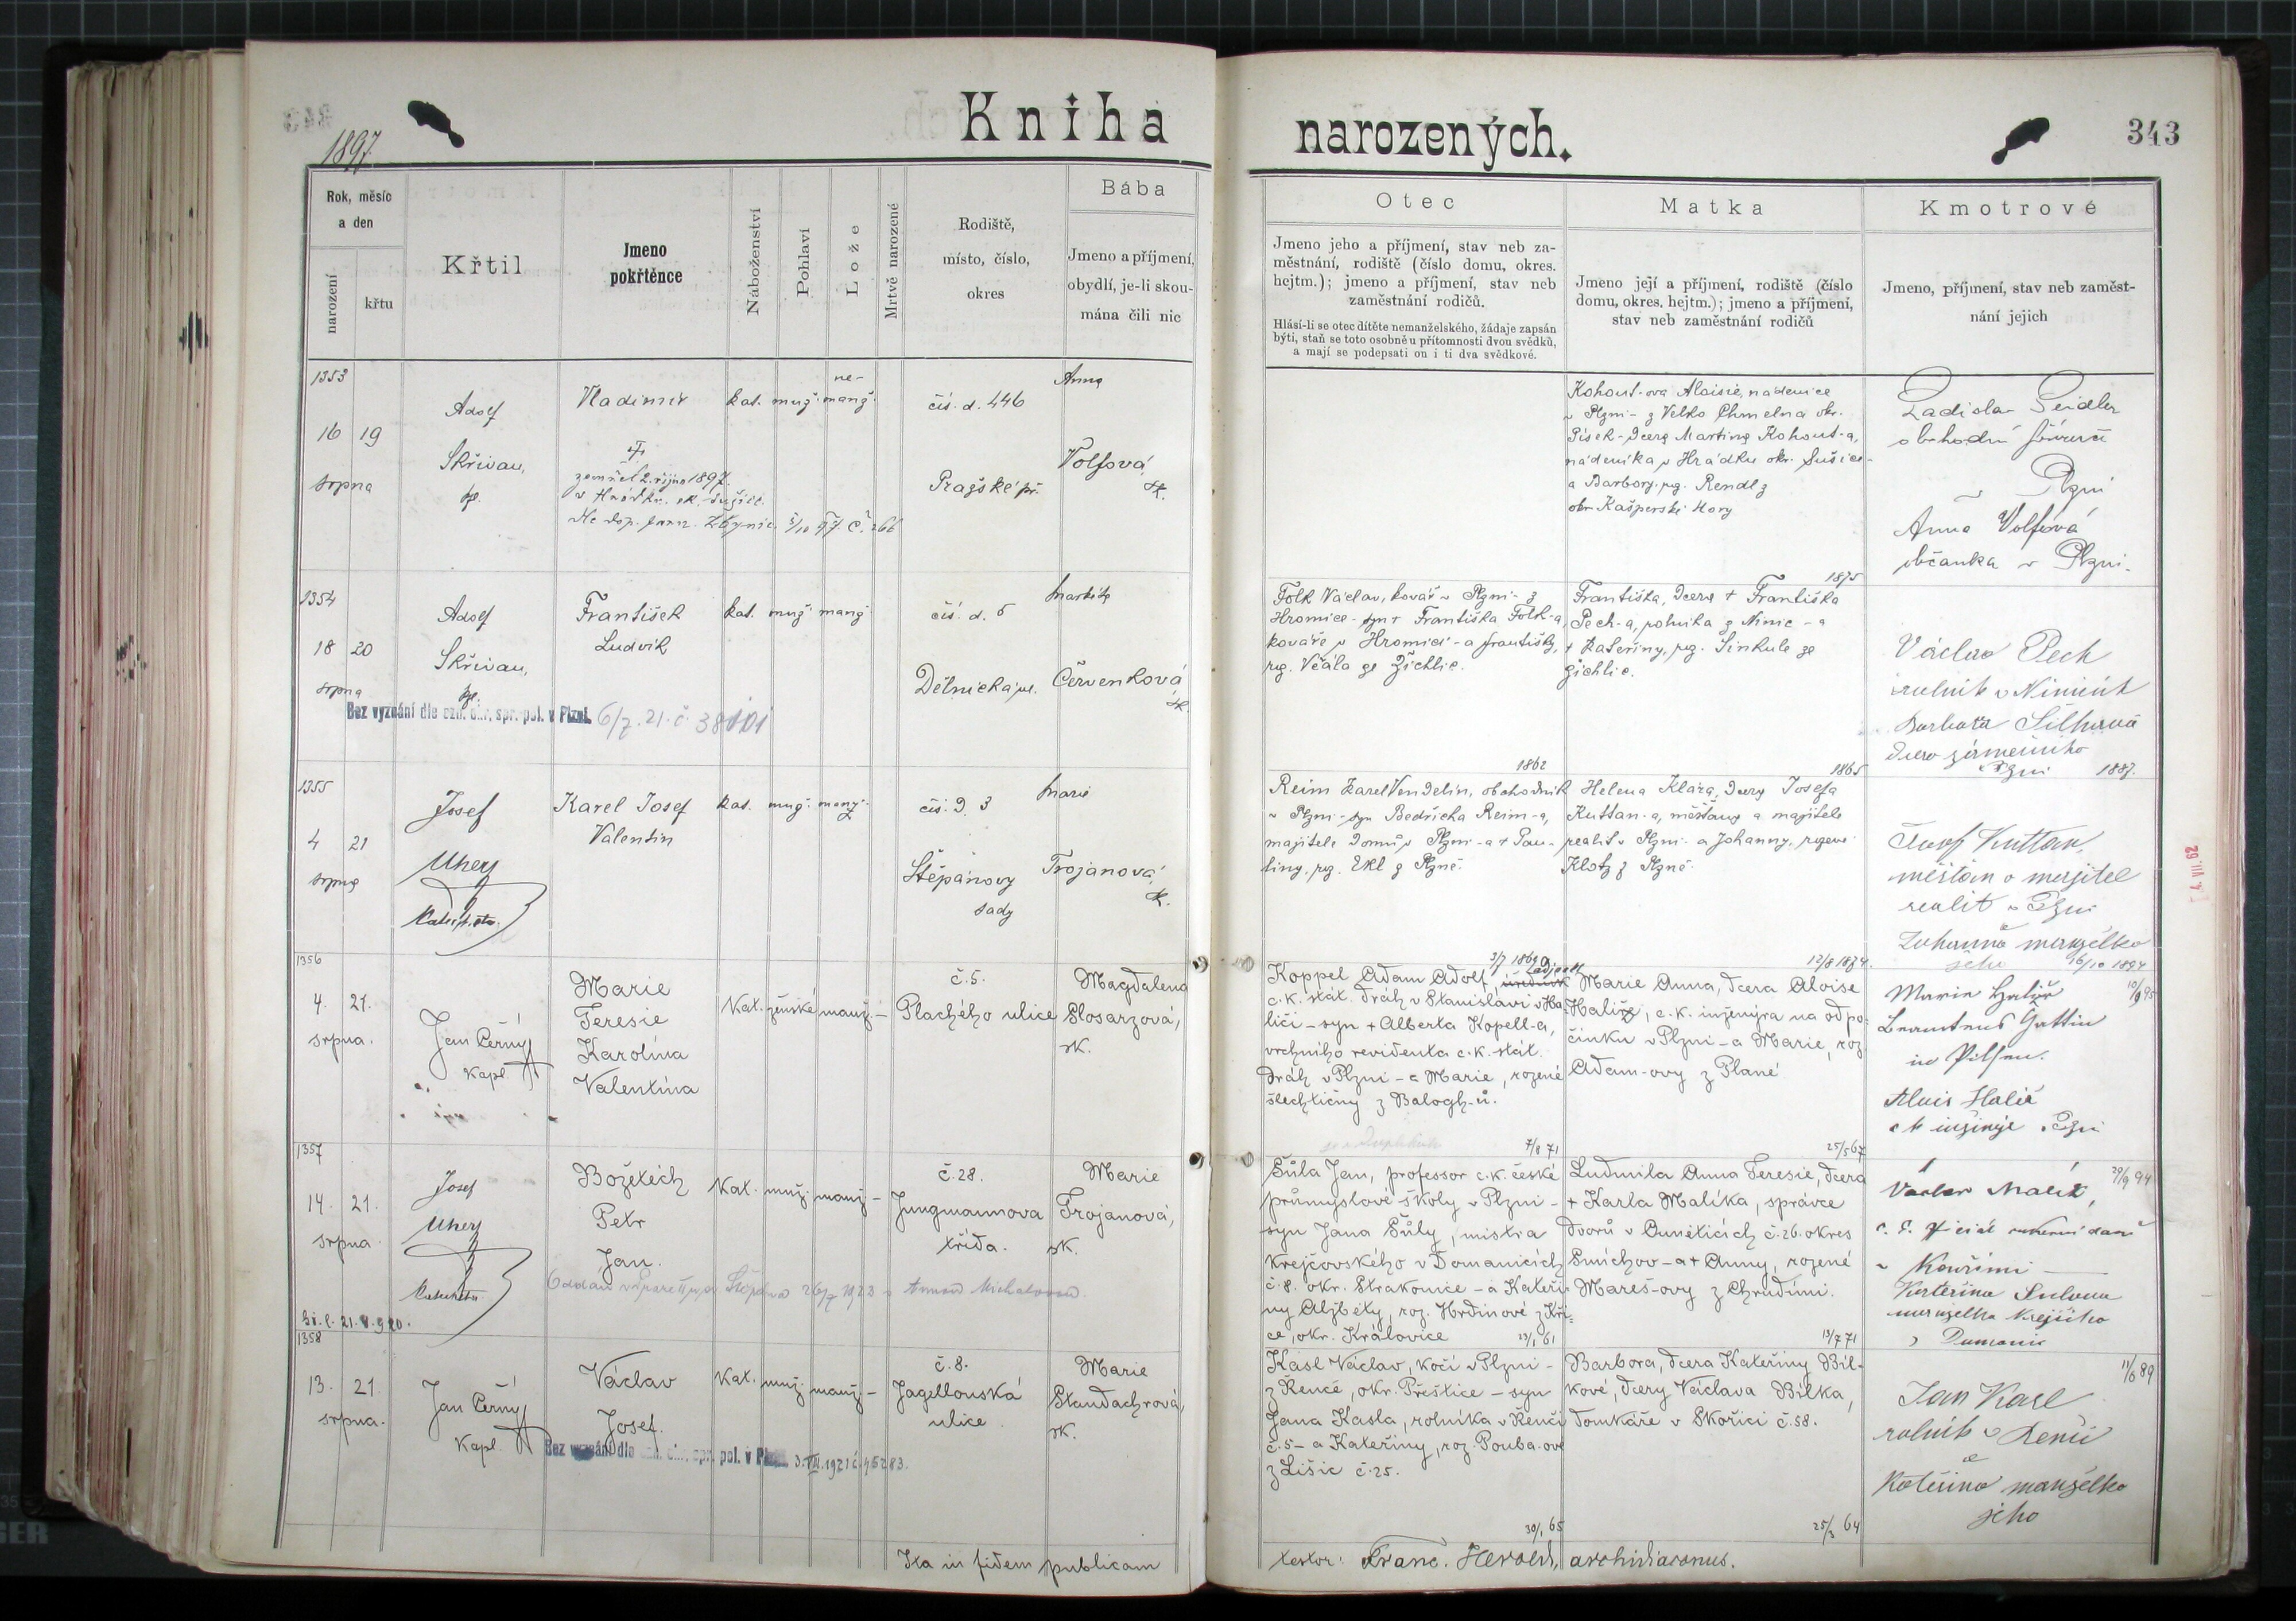 Kniha narozených.
343
1897
Rok, měsíc a den
narození
křtu
Křtil
Jmeno pokřtěnce
Náboženství
Pohlaví
Lože
Mrtvě narozené
Rodiště, místo, číslo, okres
Bába
Jmeno a příjmení, obydlí, je-li skoumána čili nic
Otec
Jmeno jeho a příjmení, stav neb zaměstnání, rodiště (číslo domu, okres. hejtm.); jmeno a příjmení, stav neb zaměstnání rodičů.
Hlásí-li se otec dítěte nemanželského, žádaje zapsán býti, staň se toto osobně u přítomnosti dvou svědků, a mají se podepsati on i ti dva svědkové.
Matka
Jmeno její a příjmení, rodiště (číslo domu, okres. hejtm.); jmeno a příjmení, stav neb zaměstnání rodičů
Kmotrové
Jmeno, příjmení, stav neb zaměstnání jejich
1353
16 19
srpna
Adolf
Skřivan,
kpl.
Vladimír
zemřel 2. října 1897.
v Hrádku. ok. Sušice.
kat. muž. nemanž.
čís. d. 446
Pražské př.
Anna
Volfová
zk.
Kohout-ova Aloisie, nádenice
v Plzni - z Velko Chmelna okr.
Písek - dcera Martina Kohout-a,
nádeníka v Hrádku okr. Sušice -
a Barbory, rz. Rendl z
okr. Kašperské Hory
1875
Ladislav Seidler
Plzni
Anna Volfová
občanka v Plzni.
1354
18 20
srpna
Adolf
Skřivan,
kpl.
František
Ludvík
kat. muž. manž.
čís. d. 5
Dělnická ul.
Markéta
Červenková
zk.
Bez vyznání dle ozn. okr. spr. pol. v Plzni. 6/7. 21. č. 38101
Folk Václav, kovář v Plzni - z
Hromice - syn + Františka Folk-a,
kováře v Hromici - a Františky,
rz. Včala ze Žichlic.
1862
Františka, dcera + Františka
Pech-a, rolníka z Nimic - a
+ Kateřiny, rz. Sinkule ze
Žichlic.
1865
Václav Pech
rolník v Nimicích
Barbora Šilhavá
Plzni 1887.
1355
4 21
srpna
Josef
Uherz
katecheta.
Karel Josef
Valentin
kat. muž. manž.
čís. d. 3
Štěpánovy
sady
Marie
Trojanová,
zk.
Reim Karel Vendelín, obchodník
v Plzni - syn Bedřicha Reim-a,
majitele domů v Plzni - a + Pauliny,
rz. Ekl z Plzně.
3/7 1869
Helena Klára, dcera Josefa
Kuttan-a, měšťana a majitele
realit v Plzni - a Johanny, rozené
Klotz z Plzně.
12/8 1874.
Josef Kuttan,
měšťan a majitel
realit v Plzni
a
Johanna manželka
jeho 16/10 1894
1356
4. 21.
srpna.
Jan Černý
kapl.
Marie
Teresie
Karolína
Valentína
Kat. ženské manž. -
č. 5.
Plachého ulice
Magdalena
Slosarzová,
zk.
Koppel Adam Adolf, úředník
c. k. stát. dráh v Stanislavi v Haliči
- syn + Alberta Kopell-a,
vrchního revidenta c. k. stát.
dráh v Plzni - a Marie, rozené
šlechtičny z Balogh-ů.
7/8 71
Marie Anna, dcera Aloise
Haliře, c. k. inženýra na odpočinku
v Plzni - a Marie, roz.
Adam-ovy z Plané
25/5 67
Marie Haliř
10/9 95
Beamtens Gattin
in Pilsen.
Alois Haliř
1357
14. 21.
srpna
Josef
Uherz
katecheta
Božetěch
Petr
Jan.
Kat. muž. manž. -
č. 28.
Jungmannova
třída.
Marie
Trojanová,
zk.
Oddán v Praze II u sv. Štěpána 26/7 1923 s Annou Michalovou.
Šůla Jan, professor c. k. české
průmyslové školy v Plzni -
syn Jana Šůly, mistra
krejčovského v Domanicích
č. 8. okr. Strakonice - a Kateřiny
Alžběty, roz. Hrdinové z Křice,
okr. Kralovice
29/1 61
Ludmila Anna Teresie, dcera
+ Karla Malíka, správce
dvorů v Úněticích č. 26. okres
Smíchov - a + Anny, rozené
Mareš-ovy z Chrudimi.
13/7 71
Václav Malík,
29/9 94
v Kouřimi
Kateřina Šulova
manželka krejčího
v Domanic
1358
13. 21.
srpna.
Jan Černý
Kapl.
Václav
Josef.
Kat. muž. manž. -
č. 8.
Jagellonská
ulice
Marie
Staudachrová,
zk.
Bez vyznání dle ozn. okr. spr. pol. v Plzni. 3. VIII. 1921 č. 45283.
Kasl Václav, kočí v Plzni -
z Řenče, okr. Přeštice - syn
Jana Kasla, rolníka v Řenči
č. 5 - a Kateřiny, roz. Pouba-ové
z Lišic č. 25.
30/1 65
Barbora, dcera Kateřiny Bílkové,
dcery Václava Bílka,
domkáře v Skořici č. 58.
25/3 64
11/6 89
Jan Kasl
rolník v Řenči
a
Kateřina manželka
jeho
Ita in fidem publicam
testor: Franc. Herold, archidiaconus.